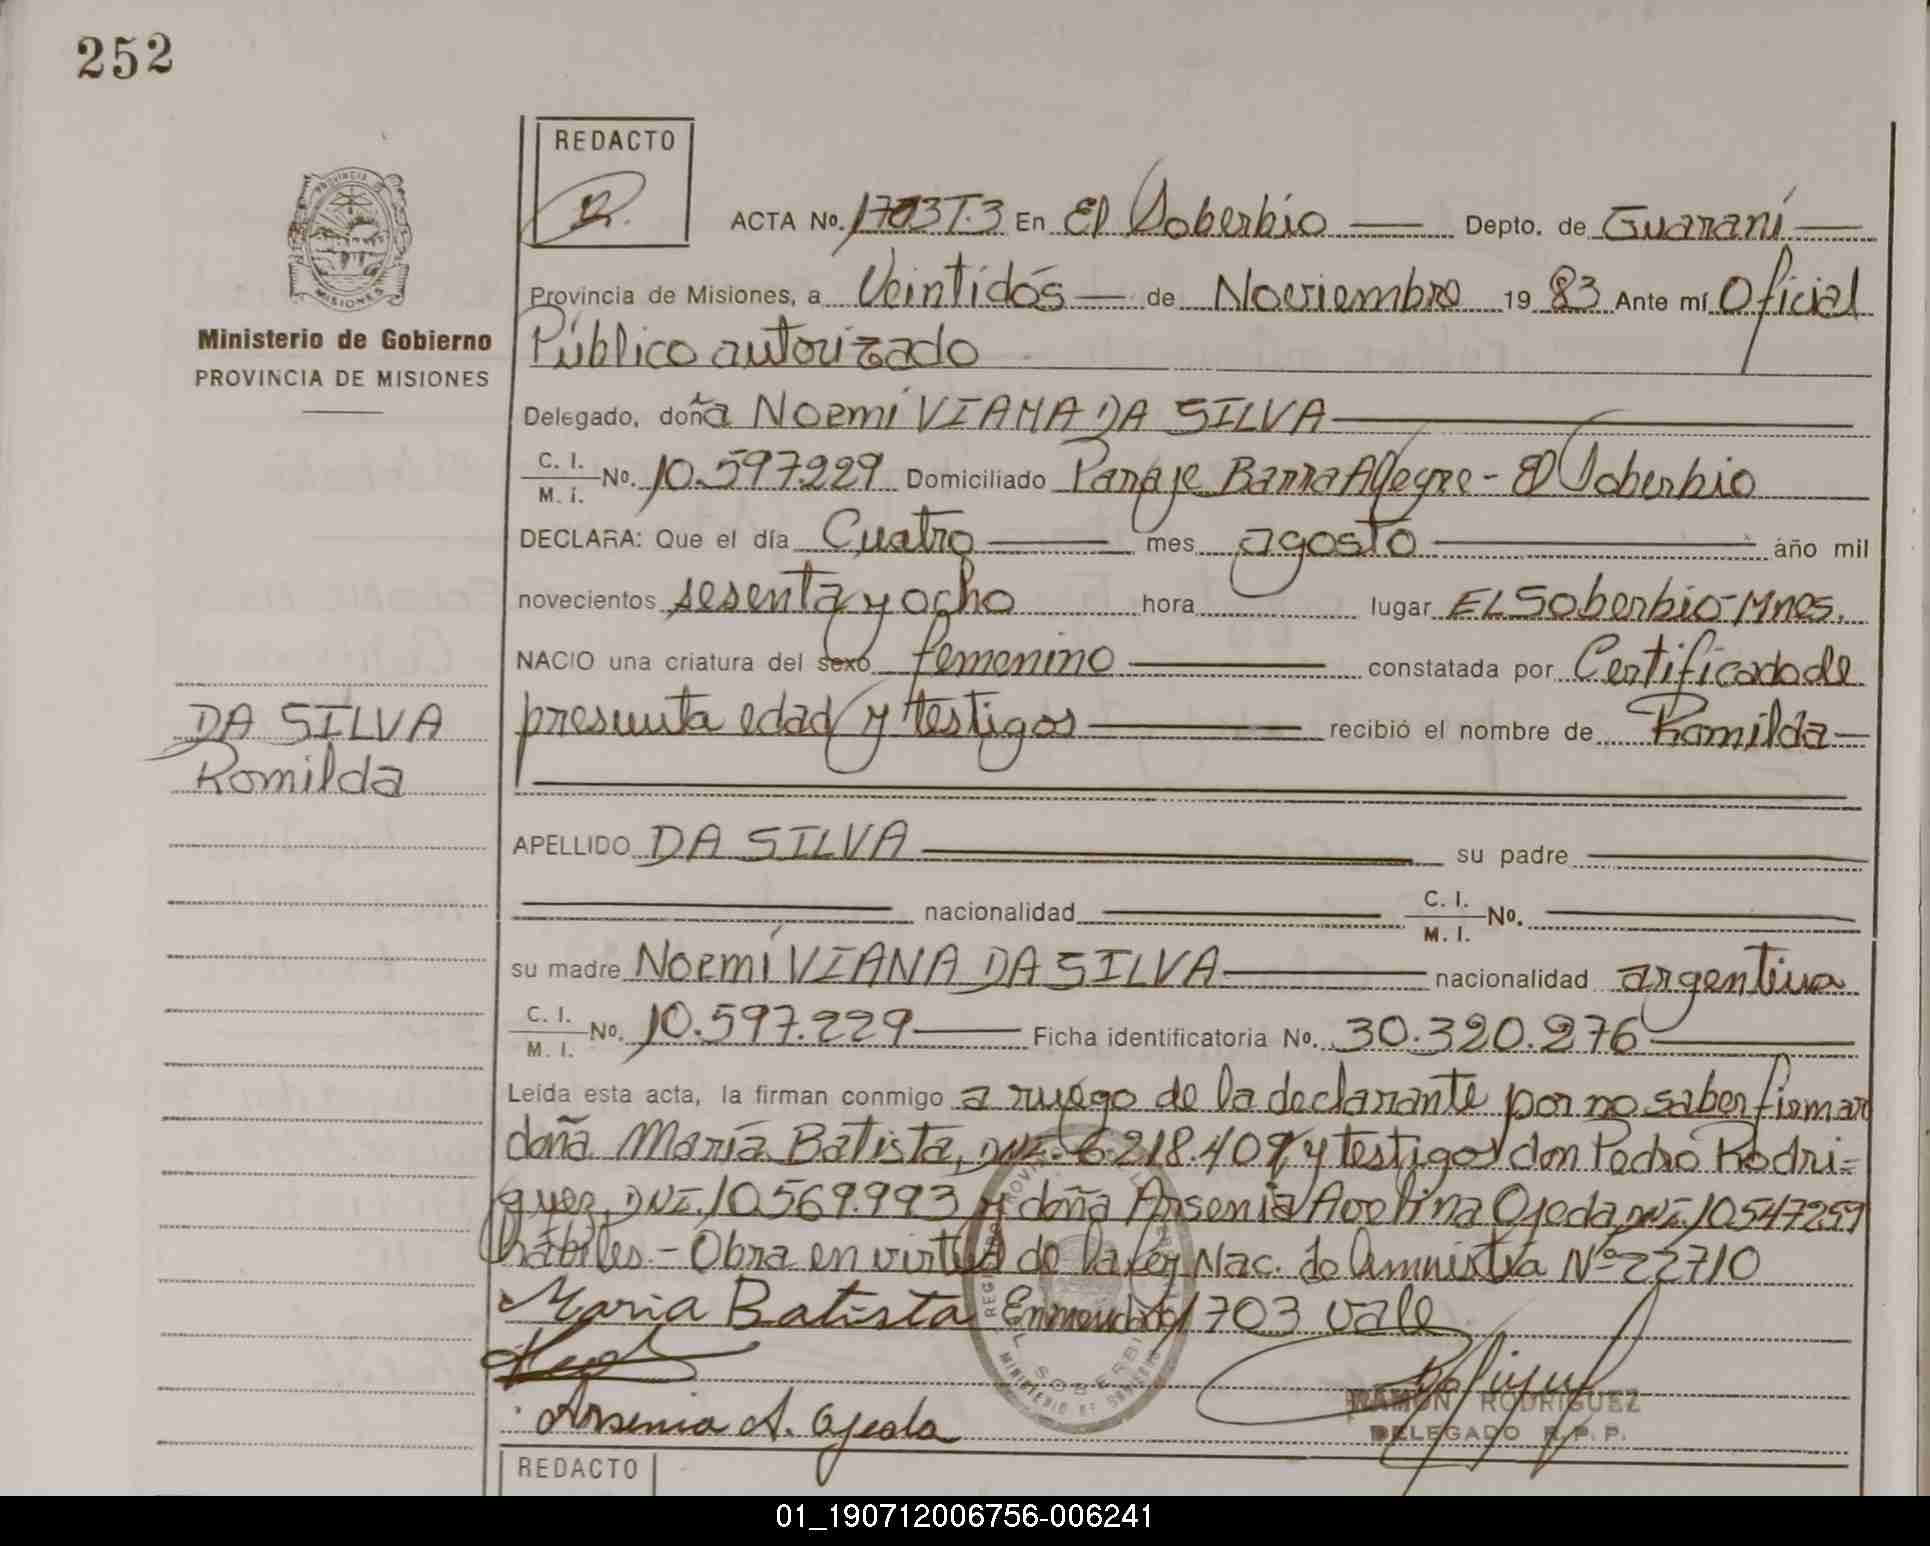 252
REDACTO
ACTA No. 1703 T.3 En El Soberbio Depto. de Guaraní
Provincia de Misiones, a Veintidós de Noviembre 19 83 Ante mí Oficial
Público autorizado
Ministerio de Gobierno
PROVINCIA DE MISIONES
Delegado, doña Noemí VIANA DA SILVA
C. I.
M. I. No. 10.597.229 Domiciliado Paraje Barra Alegre - El Soberbio
DECLARA: Que el día Cuatro mes agosto año mil
novecientos sesenta y ocho hora lugar El Soberbio-Mnes.
NACIO una criatura del sexo femenino constatada por Certificado de
presunta edad y testigos recibió el nombre de Romilda
DA SILVA
Romilda
APELLIDO DA SILVA su padre
nacionalidad C. I.
M. I. No.
su madre Noemí VIANA DA SILVA nacionalidad argentina
C. I.
M. I. No. 10.597.229 Ficha identificatoria No. 30.320.276
Leída esta acta, la firman conmigo a ruego de la declarante por no saber firmar
doña María Batista, DNI. 6.218.409, y testigos don Pedro Rodri=
guez, DNI. 10.569.993 y doña Arsenia Avelina Ojeda DNI. 10547259
hábiles.- Obra en virtud de la Ley Nac. de Amnistía Nº 22710
Maria Batista Enmendado 1703 vale
Arsenia A. Ojeda
RAMON RODRIGUEZ
DELEGADO R. P. P.
REDACTO
01_190712006756-006241